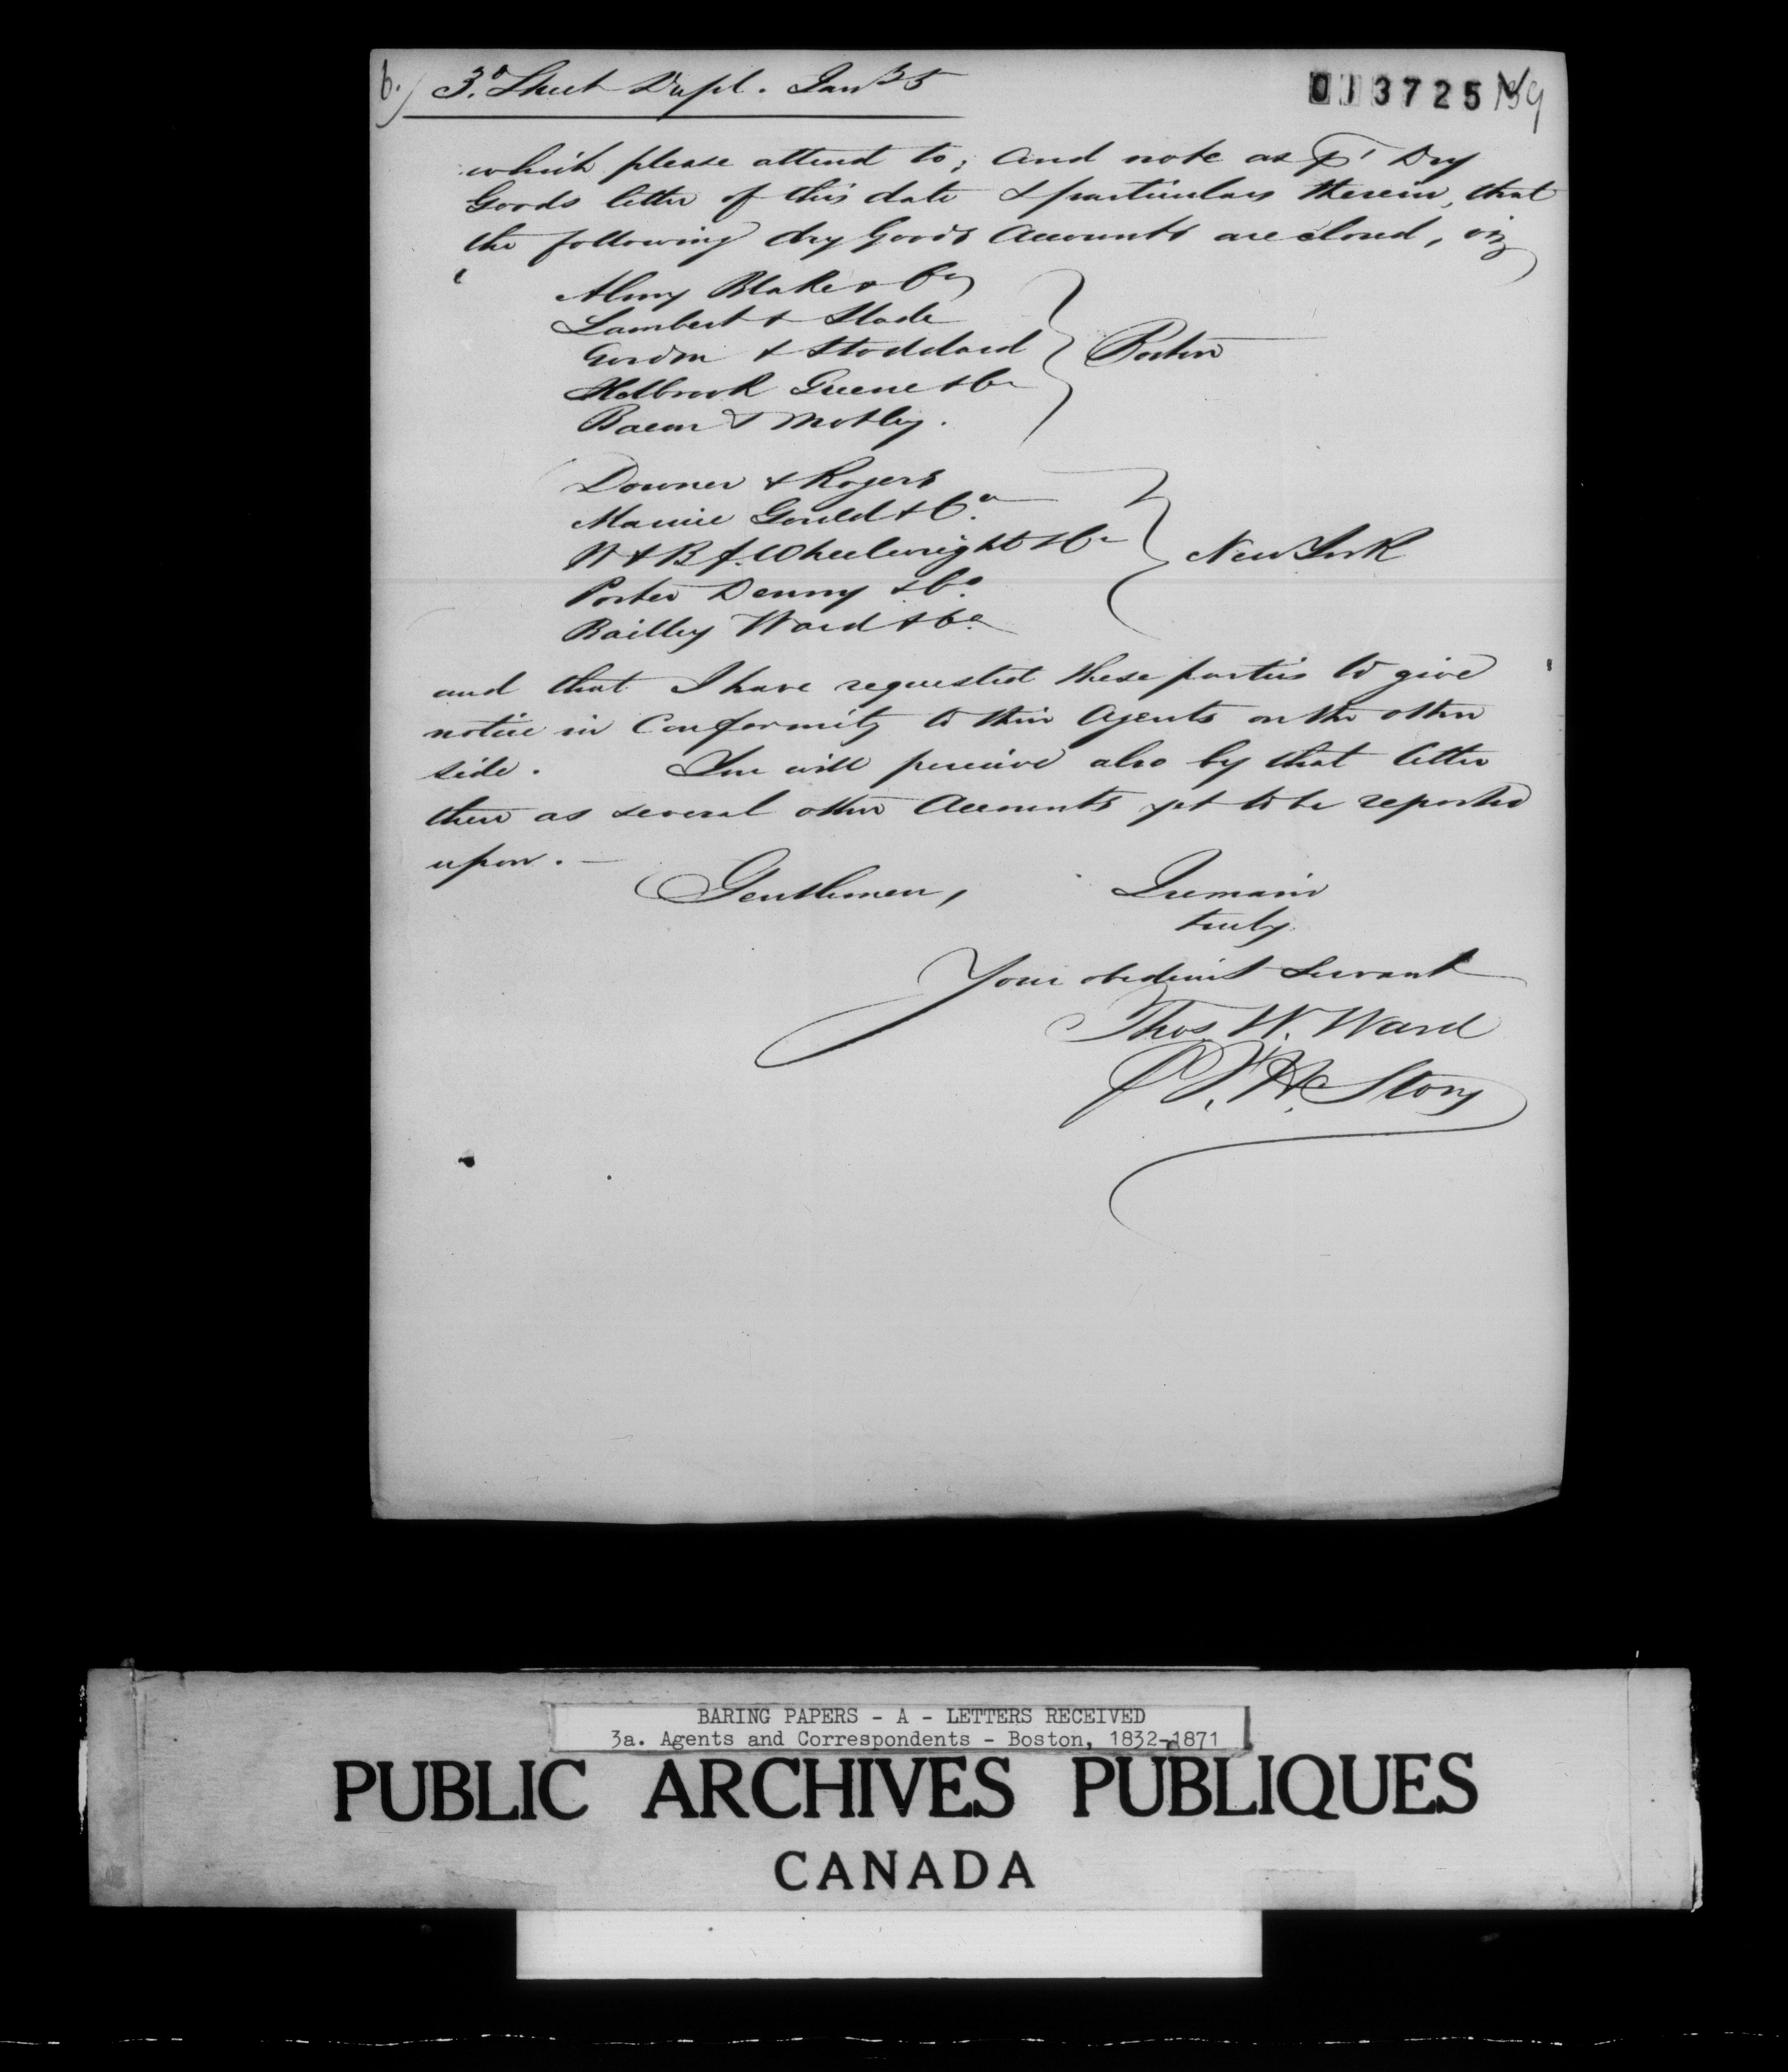 6.) 3d. Sheet Dupl. Jany 5
013725 139
which please attend to; and note as pr Dry
Goods letter of this date & particulars therein, that
the following dry Goods Accounts are closed, viz
Almy Blake & Co
Lambert & Slade
Gordon & Stoddard
Holbrook Greene & Co
Bacon & Motley.
Boston
Downer & Rogers
Gould & Co.
W & B f. Wheelwright & Co
Porter Denny & Co.
Bailley Ward & Co.
New York
and that I have requested these parties to give
notice in Conformity to their Agents on the other
side. You will perceive also by that letter
there as several other Accounts yet to be reported
upon. —
Gentlemen, I remain
truly
Your obedient Servant
Thos. W. Ward
Story
BARING PAPERS - A - LETTERS RECEIVED
3a. Agents and Correspondents - Boston, 1832-1871
PUBLIC ARCHIVES PUBLIQUES
CANADA